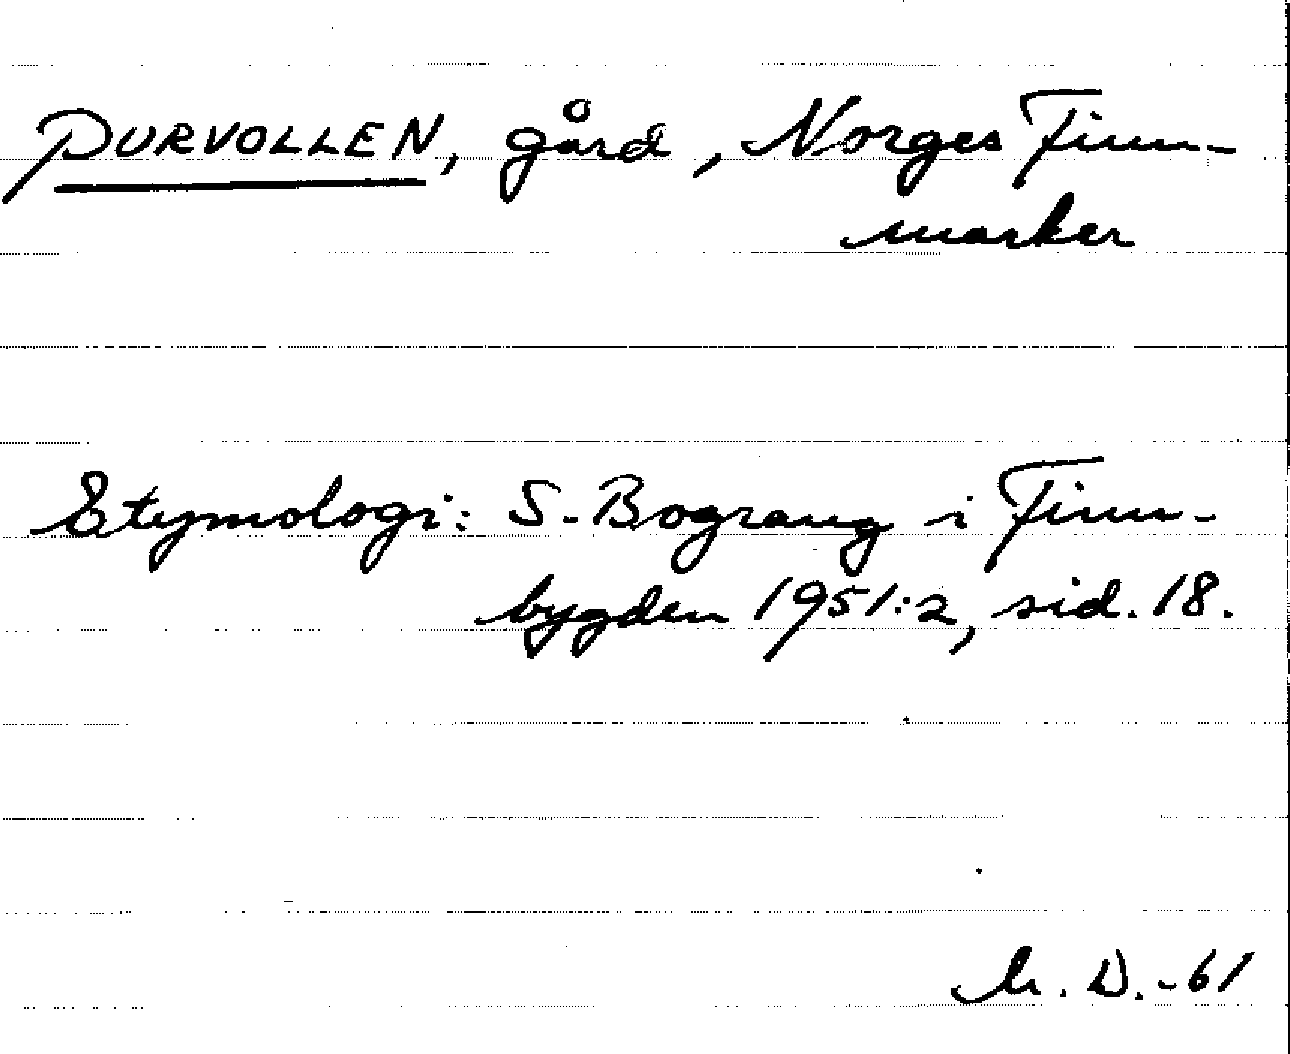 PURVOLLEN, gård, Norges Finn-
marker
Etymologi: S. Bograng i Finn-
bygden 1951:2, sid. 18.
M. D. -61